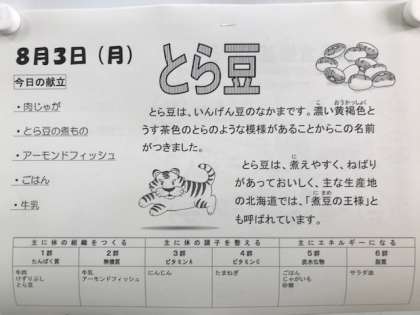 8月3日（月）
今日の献立
・肉じゃが
・とら豆の煮もの
・アーモンドフィッシュ
・ごはん
・牛乳
とら豆
とら豆は、いんげん豆のなかまです。濃い黄褐色と
うす茶色のとらのような模様があることからこの名前
がつきました。
とら豆は、煮えやすく、ねばり
があっておいしく、主な生産地
の北海道では、「煮豆の王様」と
も呼ばれています。
主に体の組織をつくる 主に体の調子を整える 主にエネルギーになる
1群 2群 3群 4群 5群 6群
たんぱく質 無機質 ビタミンA ビタミンC 炭水化物 脂質
牛肉 牛乳 にんじん たまねぎ ごはん サラダ油
けずりぶし アーモンドフィッシュ じゃがいも
とら豆 砂糖